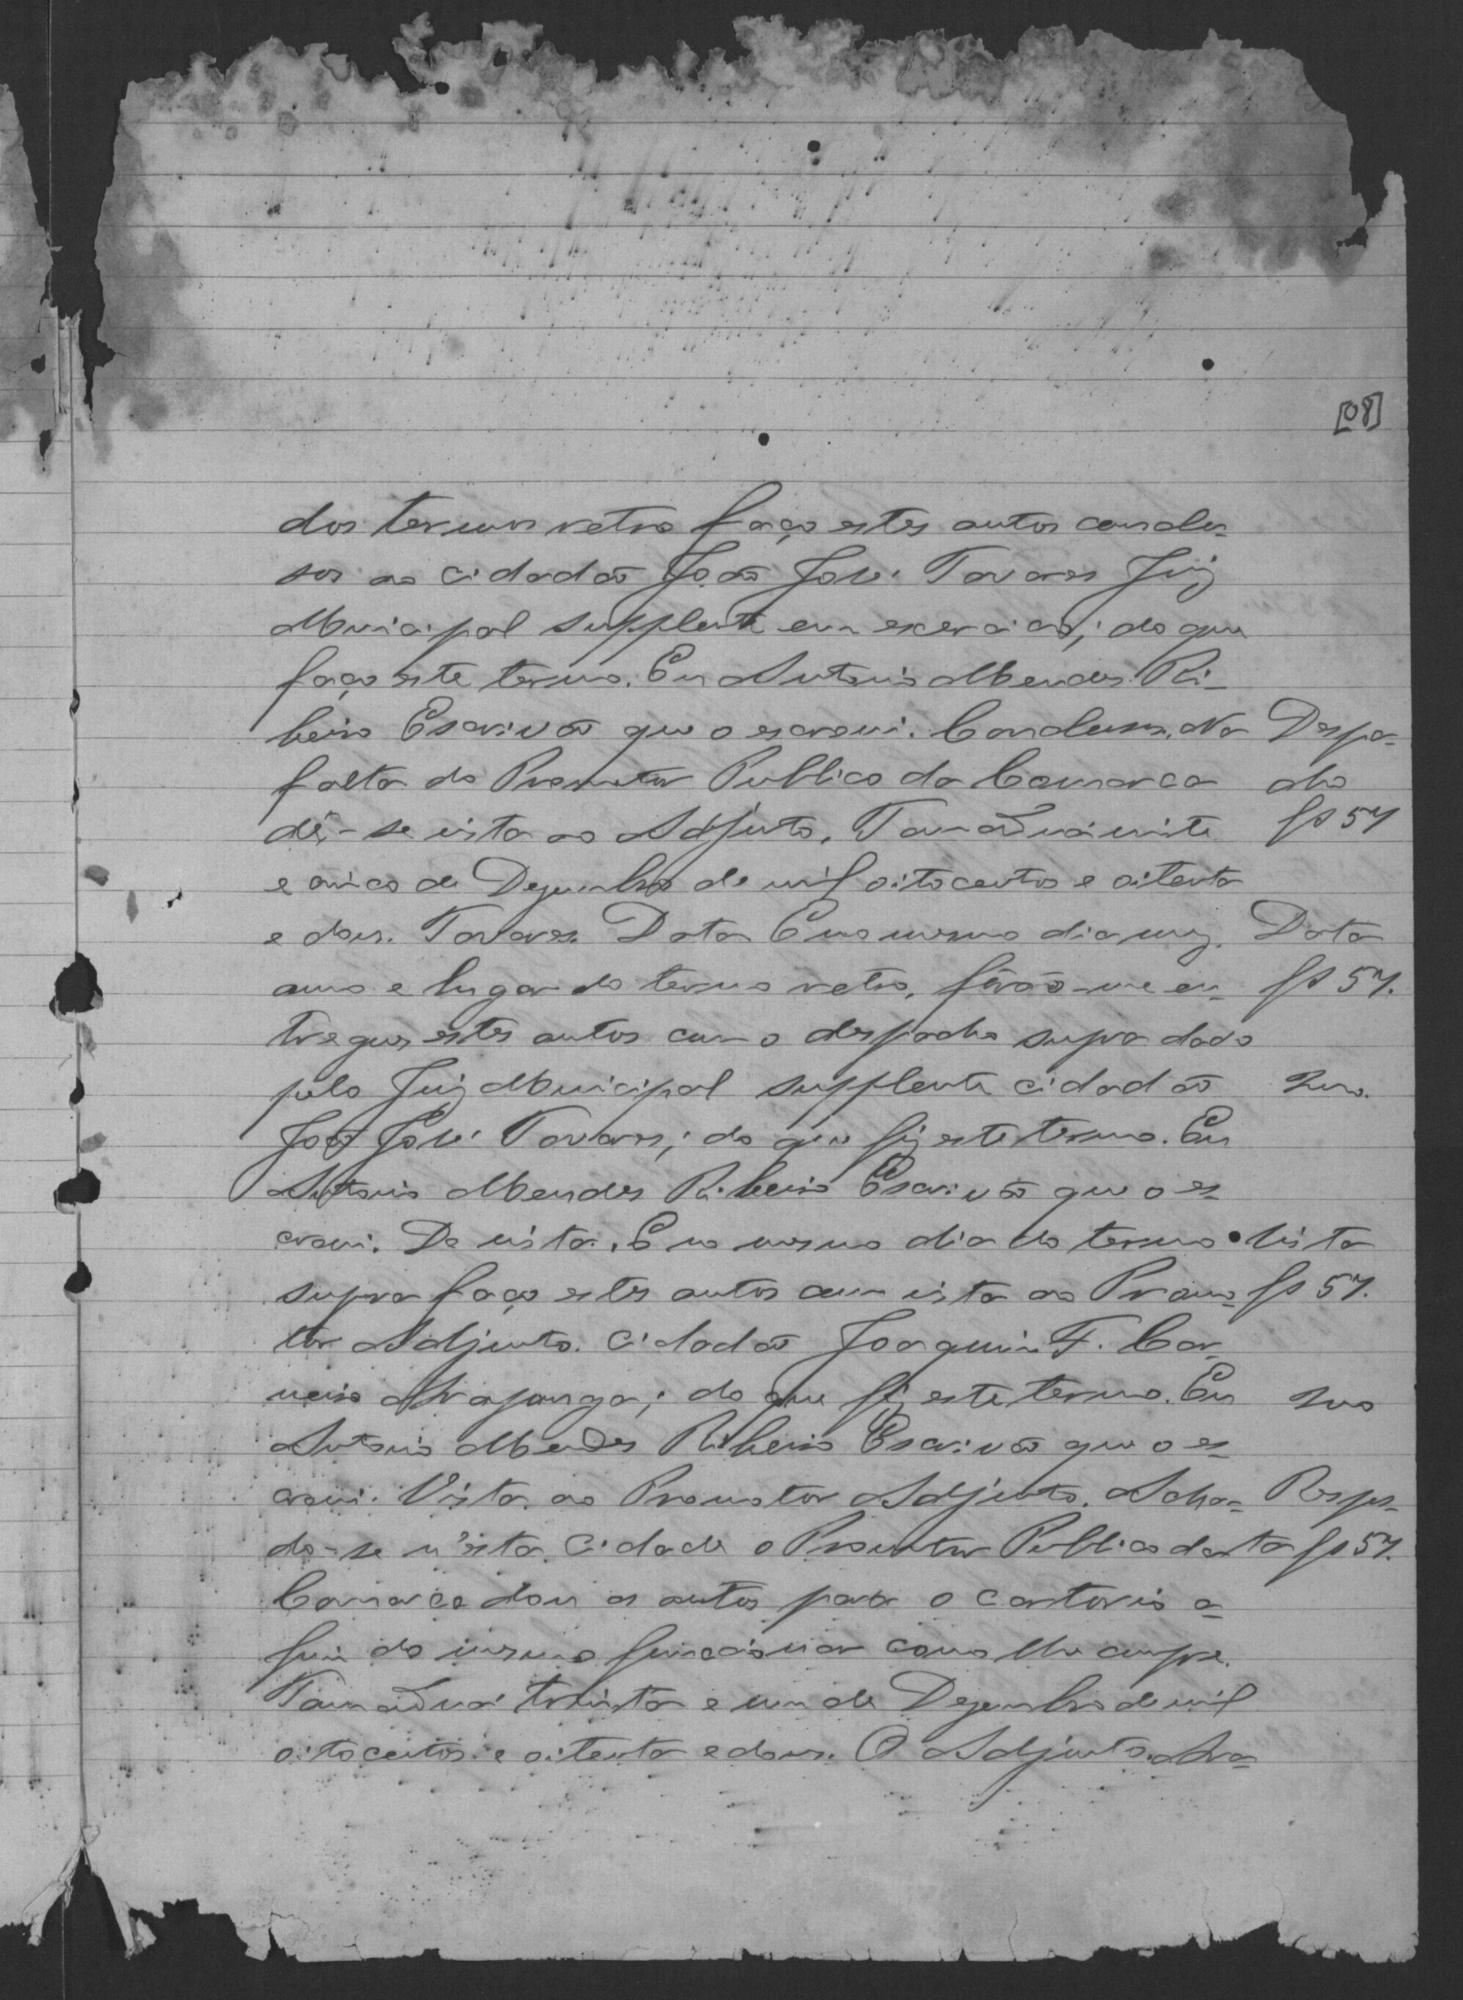 [08]
dos termos retro faço estes autos conclu-
sos ao cidadão João José Tavares Juiz
Municipal supplente em exercicio; do que
faço este termo. Eu Antonio Mendes Ri-
beiro Escrivão que o escrevi. Conclusos. Na Despa-
falta do Promotor Publico da Comarca cho
dê-se vista ao Adjunto, Tamanduá vinte fs 57
e cinco de Dezembro de mil oitocentos e oitenta
e dous. Tavares. Data E no mesmo dia mez. Data
anno e lugar do termo retro, forão-me en- fs 57.
tregues estes autos com o despacho supra dado
pelo Juiz Municipal supplente cidadão
João José Tavares; do que fiz este termo. Eu
Antonio Mendes Ribeiro Escrivão que o es-
crevi. De vista. E no mesmo dia do termo Vista
supra faço estes autos com vista ao Promo- fs 57.
tor Adjunto. Cidadão Joaquim F. Car-
neiro ; do que fiz este termo. Eu
Antonio Mendes Ribeiro Escrivão que o es-
crevi. Vista. ao Promotor Adjunto. Achan- Respos-
do-se n'esta Cidade o Promotor Publico da ta fs 57.
Comarca dou os autos para o cartorio a
fim do mesmo funccionar como lhe cumpre.
Tamanduá trinta e um de Dezembro de mil
oitocentos e oitenta e dous. O Adjunto. Ara-